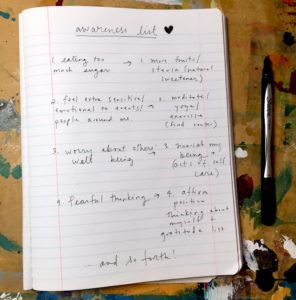 awareness list ♥
1. eating too → 1. more fruits/
much sugar stevia (natural
sweetener)
2. feel extra sensitive/ → 2. meditate/
emotional to events/ yoga/
people around me. exercise
(find center)
3. worry about others' → 3. my
well being being +
acts of self
care)
4. fearful thinking → 4. affirm
positive
thinking about
myself +
gratitude list
... and so forth!